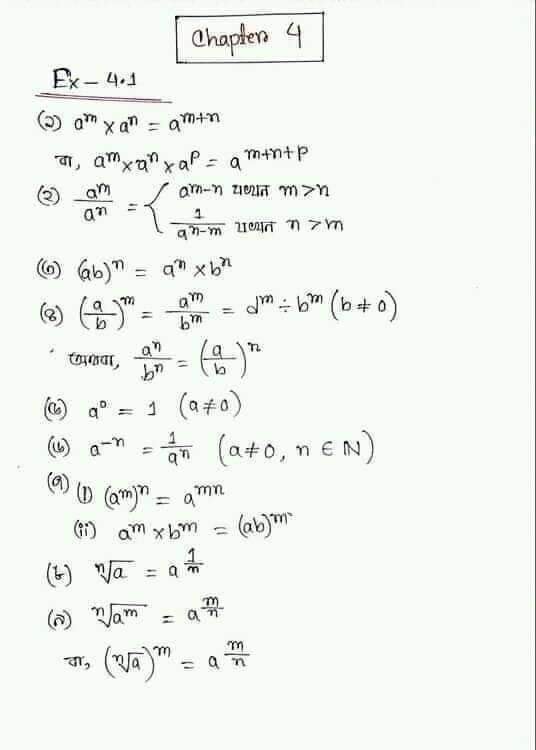 Chapter 4
Ex - 4.1
(১) aᵐ × aⁿ = aᵐ⁺ⁿ
বা, aᵐ × aⁿ × aᵖ = aᵐ⁺ⁿ⁺ᵖ
(২) aᵐ/aⁿ = { aᵐ⁻ⁿ যখন m > n
1/aⁿ⁻ᵐ যখন n > m
(৩) (ab)ⁿ = aⁿ × bⁿ
(৪) (a/b)ᵐ = aᵐ/bᵐ = aᵐ ÷ bᵐ (b ≠ 0)
অথবা, aⁿ/bⁿ = (a/b)ⁿ
(৫) a⁰ = 1 (a ≠ 0)
(৬) a⁻ⁿ = 1/aⁿ (a ≠ 0, n ∈ ℕ)
(৭) (i) (aᵐ)ⁿ = aᵐⁿ
(ii) aᵐ × bᵐ = (ab)ᵐ
(৮) ⁿ√a = a^(1/n)
(৯) ⁿ√aᵐ = a^(m/n)
বা, (ⁿ√a)ᵐ = a^(m/n)